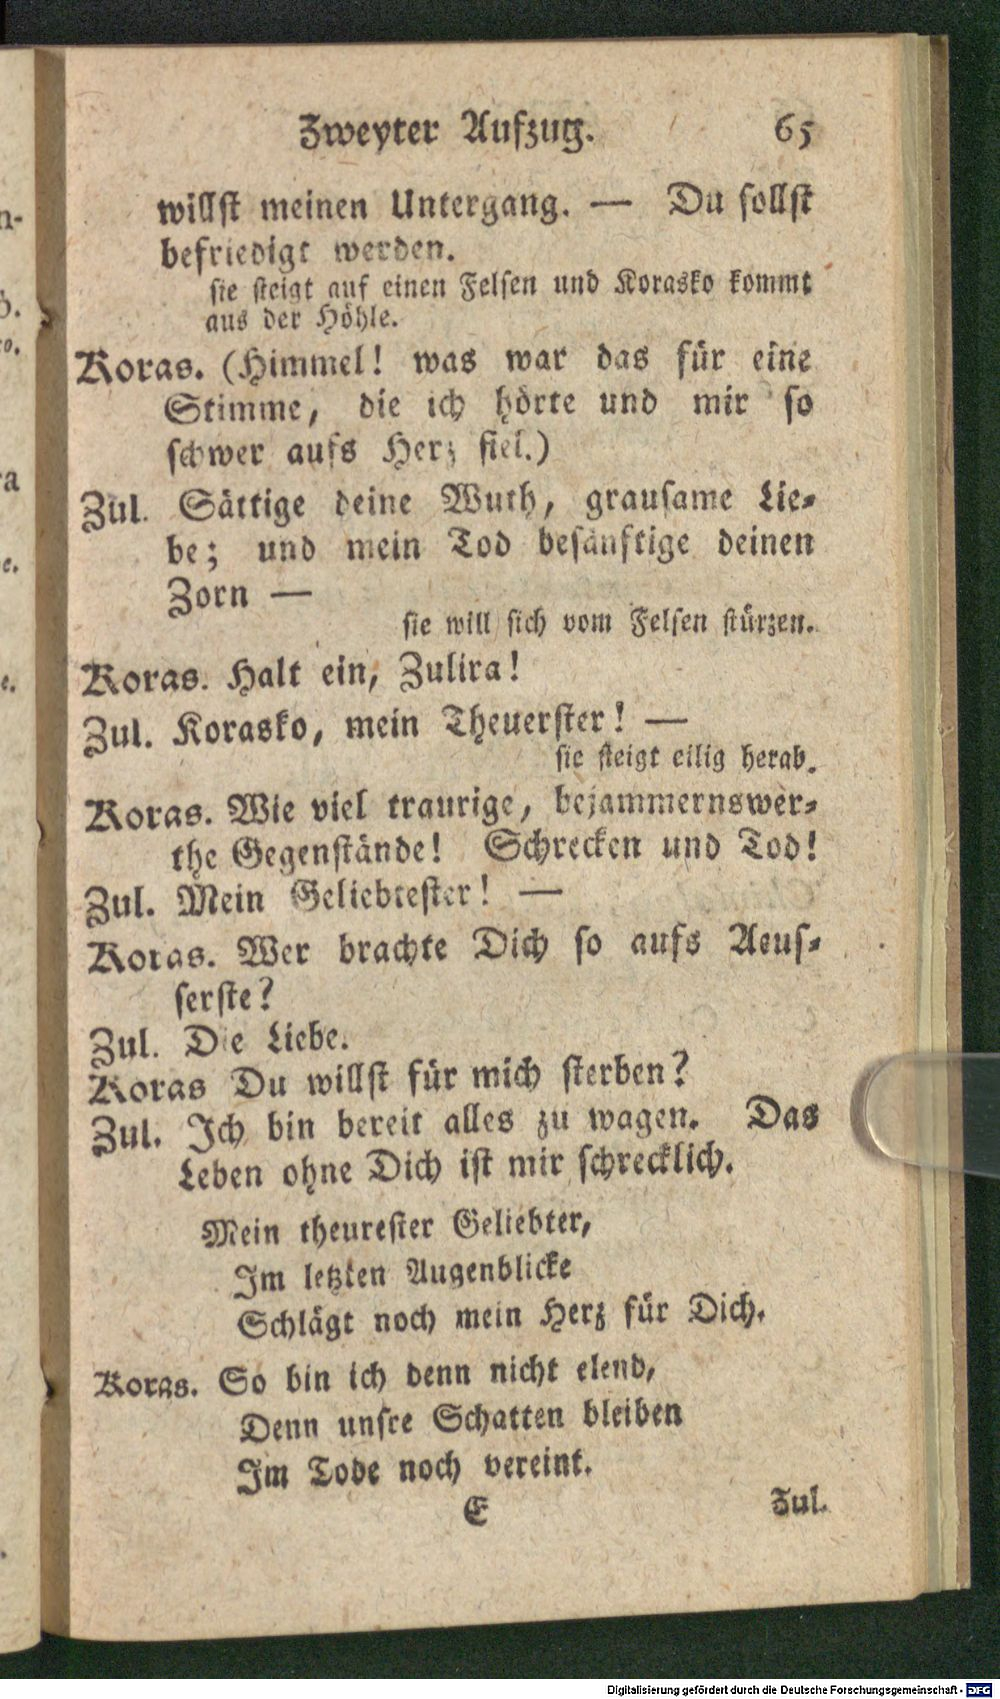 Zweyter Aufzug. 65
willst meinen Untergang. — Du sollst
befriedigt werden.
sie steigt auf einen Felsen und Korasko kommt
aus der Höhle.
Koras. (Himmel! was war das für eine
Stimme, die ich hörte und mir so
schwer aufs Herz fiel.)
Zul. Sättige deine Wuth, grausame Lie-
be; und mein Tod besänftige deinen
Zorn —
sie will sich vom Felsen stürzen.
Koras. Halt ein, Zulira!
Zul. Korasko, mein Theuerster! —
sie steigt eilig herab.
Koras. Wie viel traurige, bejammernswer-
the Gegenstände! Schrecken und Tod!
Zul. Mein Geliebtester! —
Koras. Wer brachte Dich so aufs Aeus-
serste?
Zul. Die Liebe.
Koras Du willst für mich sterben?
Zul. Ich bin bereit alles zu wagen. Das
Leben ohne Dich ist mir schrecklich.
Mein theurester Geliebter,
Im letzten Augenblicke
Schlägt noch mein Herz für Dich.
Koras. So bin ich denn nicht elend,
Denn unsre Schatten bleiben
Im Tode noch vereint.
E Zul.
Digitalisierung gefördert durch die Deutsche Forschungsgemeinschaft - DFG